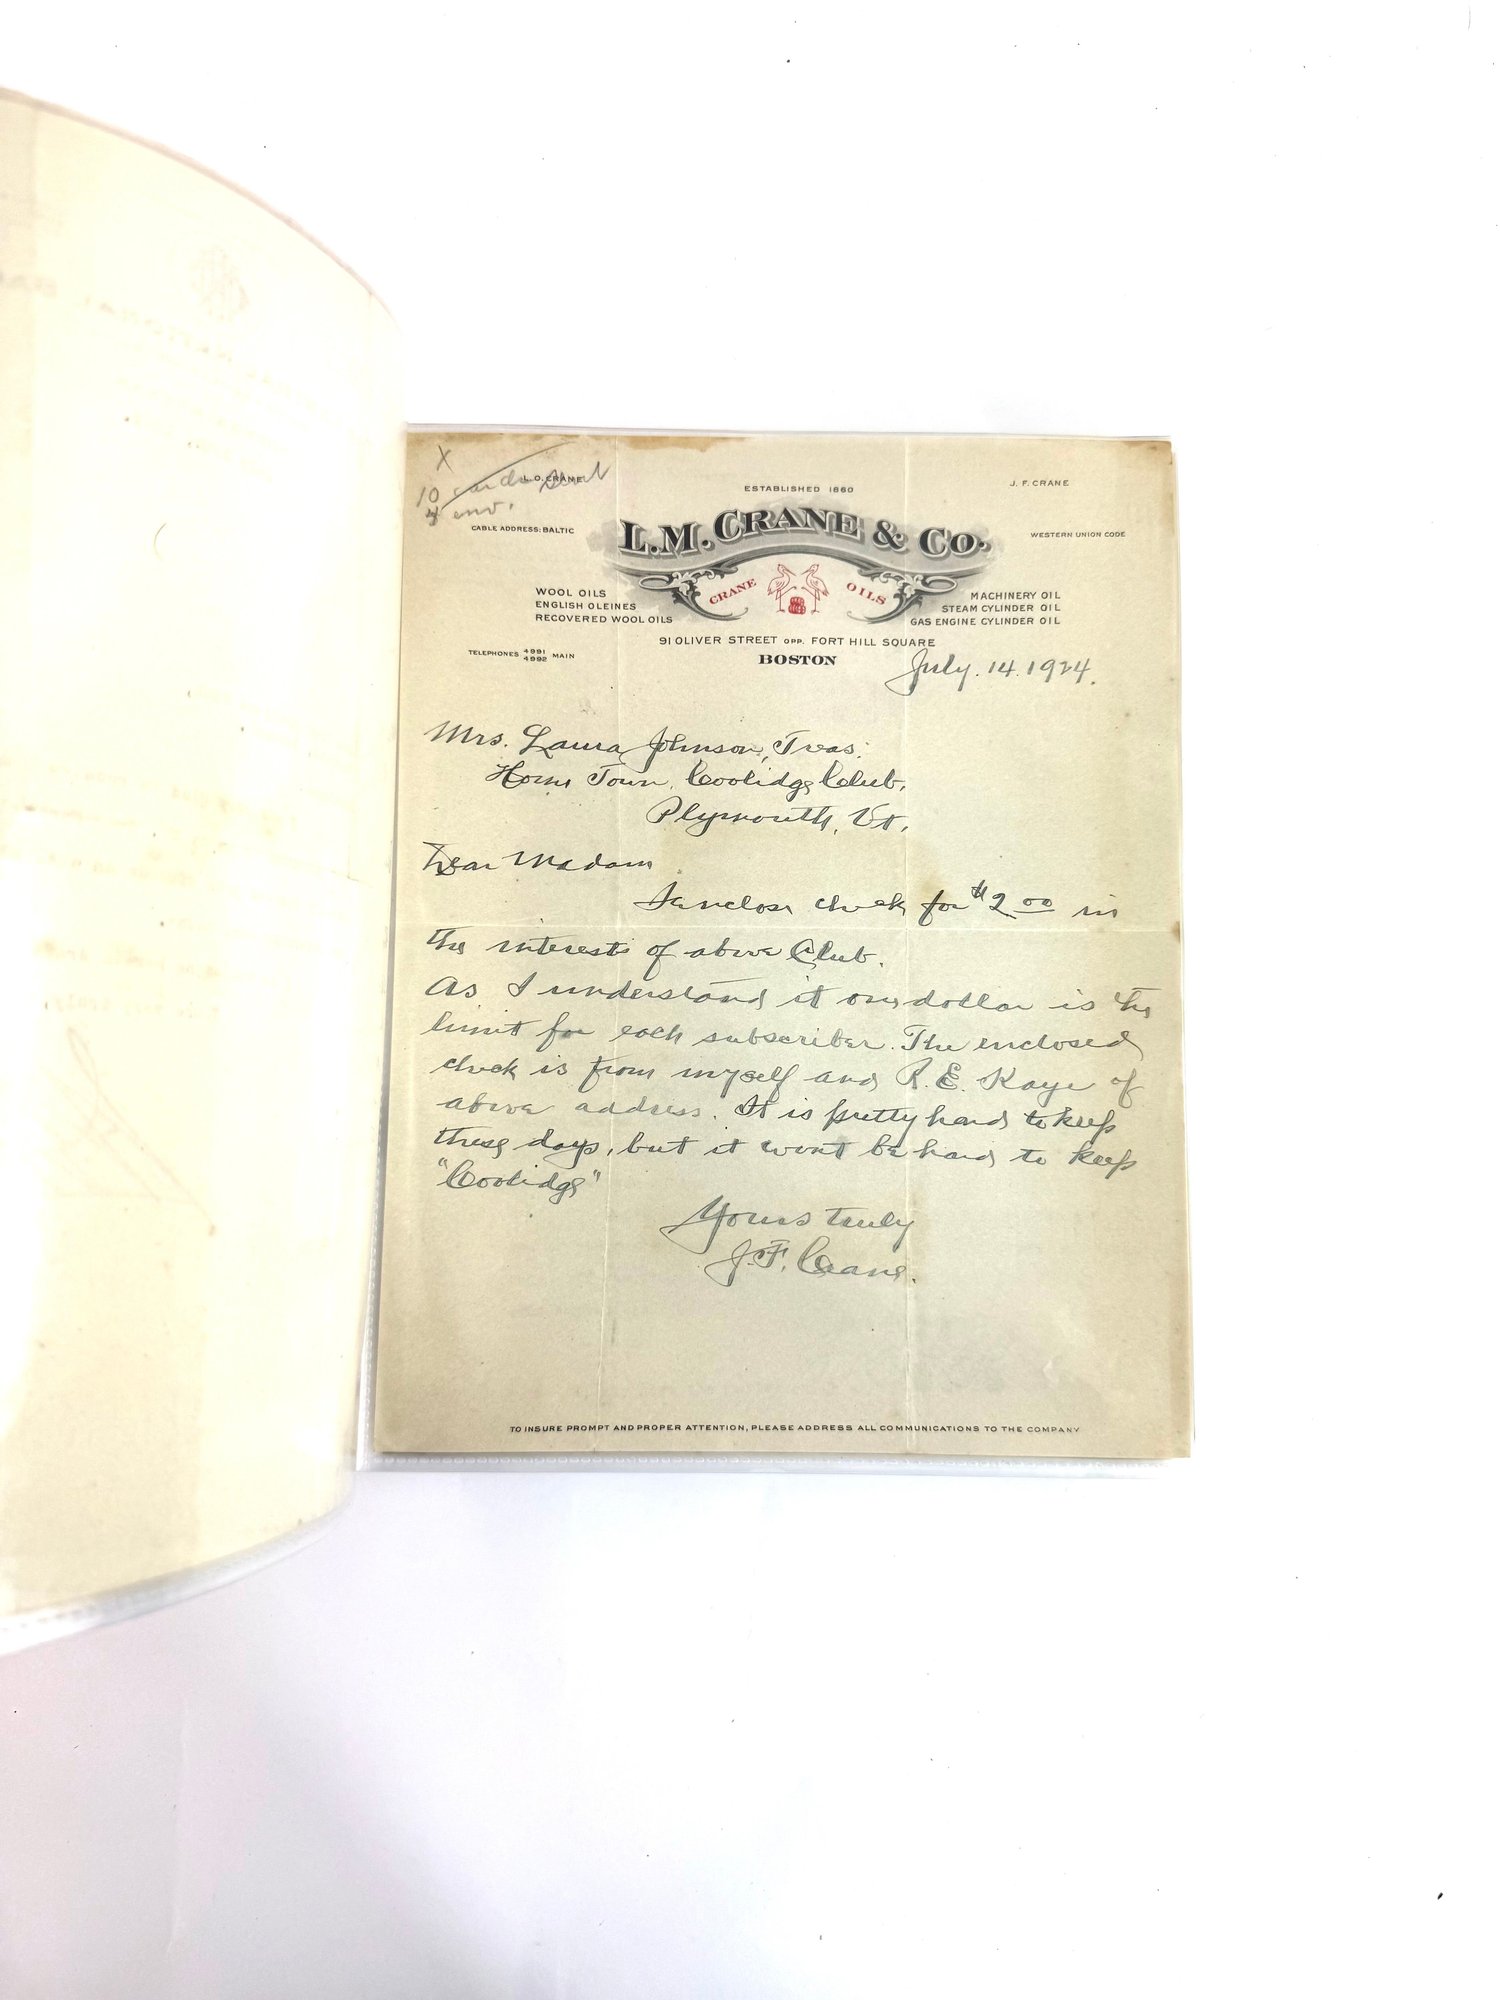 X
10 cards sent
4 env.
L.O. CRANE
ESTABLISHED 1860
J. F. CRANE
CABLE ADDRESS: BALTIC
L.M. CRANE & CO.
WESTERN UNION CODE
CRANE OILS
WOOL OILS
ENGLISH OLEINES
RECOVERED WOOL OILS
MACHINERY OIL
STEAM CYLINDER OIL
GAS ENGINE CYLINDER OIL
91 OLIVER STREET OPP. FORT HILL SQUARE
TELEPHONES 4991 4992 MAIN
BOSTON
July. 14. 1924.
Mrs. Laura Johnson, Treas.
Home Town Coolidge Club.
Plymouth, Vt.
Dear Madam
I enclose check for $2.00 in
the interests of above Club.
As I understand it one dollar is the
limit for each subscriber. The enclosed
check is from myself and R. E. Kaye of
above address. It is pretty hard to keep
these days, but it wont be hard to keep
"Coolidge"
Yours truly
J. F. Crane.
TO INSURE PROMPT AND PROPER ATTENTION, PLEASE ADDRESS ALL COMMUNICATIONS TO THE COMPANY